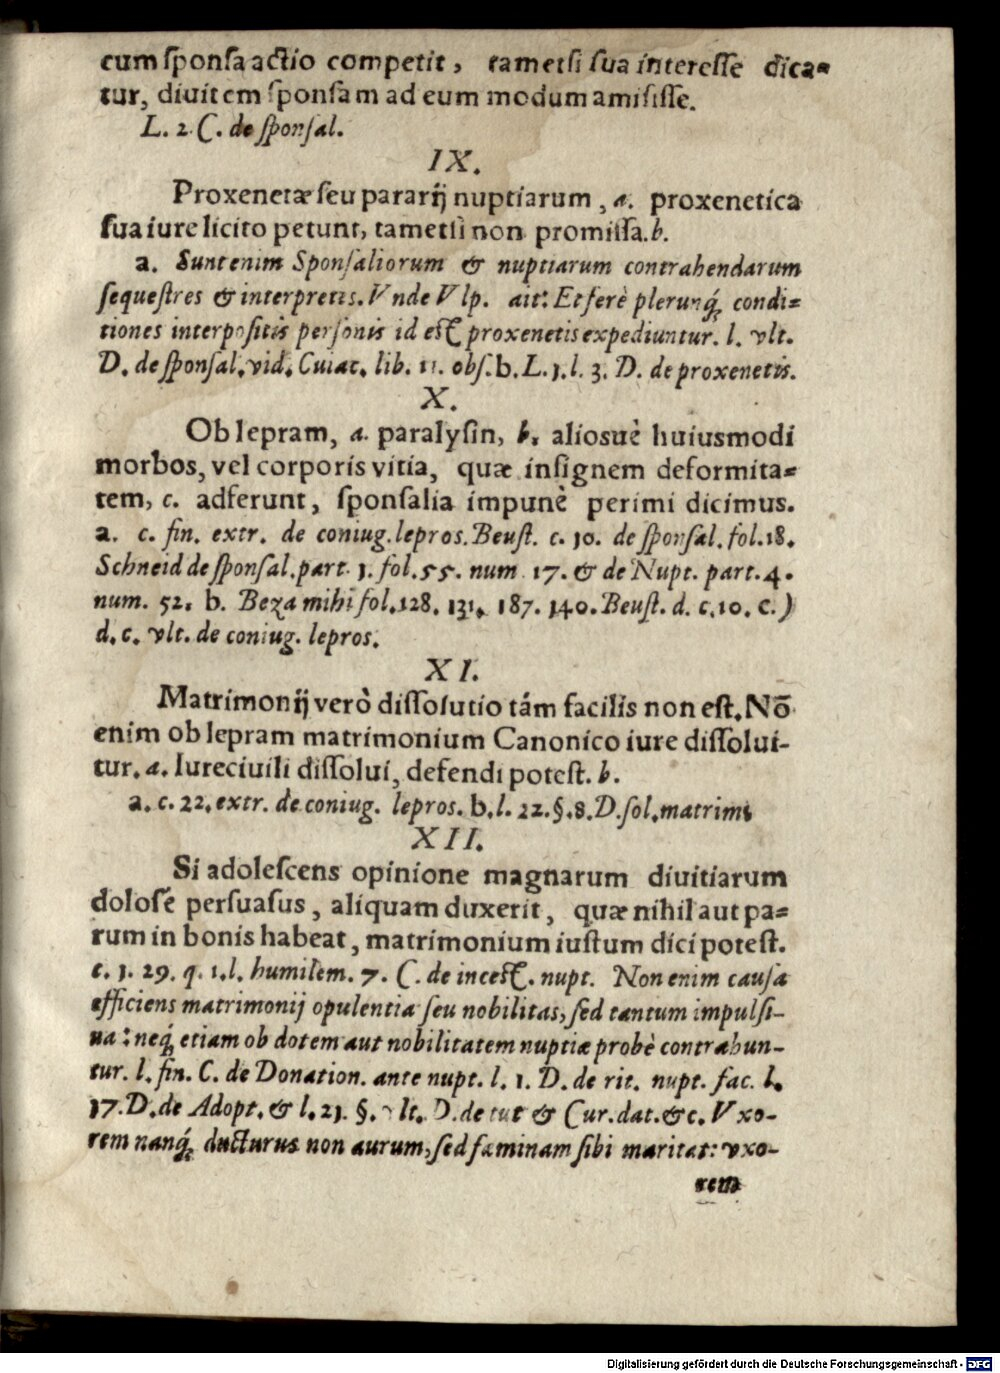 cum sponsa actio competit, tametsi sua interesse dica-
tur, diuitem sponsam ad eum modum amisisse.
L. 2. C. de sponsal.
IX.
Proxenetæ seu pararij nuptiarum, a. proxenetica
sua iure licito petunt, tametsi non promissa. b.
a. Sunt enim Sponsaliorum & nuptiarum contrahendarum
sequestres & interpretes. Vnde Vlp. ait: Et ferè plerunq́; condi-
tiones interpositis personis id est proxenetis expediuntur. l. vlt.
D. de sponsal. vid. Cuiat. lib. 11. obs. b. L. 1. l. 3. D. de proxenetis.
X.
Ob lepram, a. paralysin, b. aliosuè huiusmodi
morbos, vel corporis vitia, quæ insignem deformita-
tem, c. adferunt, sponsalia impunè perimi dicimus.
a. c. fin. extr. de coniug. lepros. Beust. c. 10. de sponsal. fol. 18.
Schneid de sponsal. part. 1. fol. 55. num 17. & de Nupt. part. 4.
num. 52. b. Beza mihi fol. 128. 131. 187. 140. Beust. d. c. 10. c.)
d. c. vlt. de coniug. lepros.
XI.
Matrimonij verò dissolutio tám facilis non est. Nō
enim ob lepram matrimonium Canonico iure dissolui-
tur. a. Iure ciuili dissolui, defendi potest. b.
a. c. 22. extr. de coniug. lepros. b. l. 22. §. 8. D. sol. matrim.
XII.
Si adolescens opinione magnarum diuitiarum
dolosè persuasus, aliquam duxerit, quæ nihil aut pa-
rum in bonis habeat, matrimonium iustum dici potest.
c. 1. 29. q. 1. l. humilem. 7. C. de incest. nupt. Non enim causa
efficiens matrimonij opulentia seu nobilitas, sed tantum impulsi-
ua: neq́; etiam ob dotem aut nobilitatem nuptiæ probè contrahun-
tur. l. fin. C. de Donation. ante nupt. l. 1. D. de rit. nupt. fac. l.
17. D. de Adopt. & l. 21. §. vlt. D. de tut & Cur. dat. &c. Vxo-
rem nanq́; ducturus non aurum, sed fæminam sibi maritat: vxo-
rem
Digitalisierung gefördert durch die Deutsche Forschungsgemeinschaft - DFG